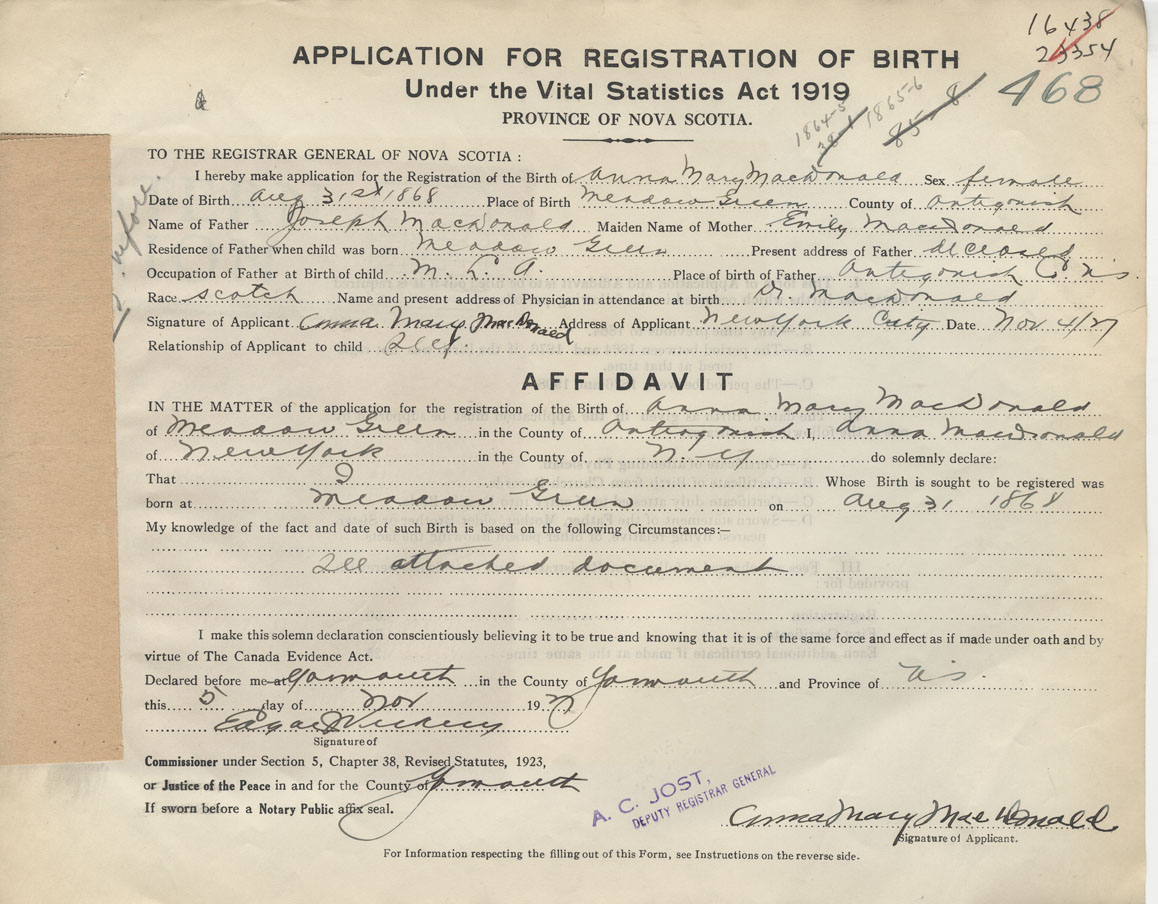 16438
23354
468
APPLICATION FOR REGISTRATION OF BIRTH
Under the Vital Statistics Act 1919
PROVINCE OF NOVA SCOTIA.
1864-5 1865-6
TO THE REGISTRAR GENERAL OF NOVA SCOTIA :
I hereby make application for the Registration of the Birth of Anna Mary MacDonald Sex female
Date of Birth Aug 31st 1868 Place of Birth Meadow Green County of Antigonish
Name of Father Joseph MacDonald Maiden Name of Mother Emily MacDonald
Residence of Father when child was born Meadow Green Present address of Father deceased
Occupation of Father at Birth of child M. L. A. Place of birth of Father Antigonish Co N.S.
Race Scotch Name and present address of Physician in attendance at birth Dr. MacDonald
Signature of Applicant Anna Mary MacDonald Address of Applicant New York City Date Nov 4/27
Relationship of Applicant to child Self.
AFFIDAVIT
IN THE MATTER of the application for the registration of the Birth of Anna Mary MacDonald
of Meadow Green in the County of Antigonish I, Anna MacDonald
of New York in the County of N. Y. do solemnly declare:
That I Whose Birth is sought to be registered was
born at Meadow Green on Aug 31 1868
My knowledge of the fact and date of such Birth is based on the following Circumstances:—
See attached document
I make this solemn declaration conscientiously believing it to be true and knowing that it is of the same force and effect as if made under oath and by
virtue of The Canada Evidence Act.
Declared before me at Yarmouth in the County of Yarmouth and Province of N.S.
this 5 day of Nov 1927
Edgar Vickery
Signature of
Commissioner under Section 5, Chapter 38, Revised Statutes, 1923,
or Justice of the Peace in and for the County of Yarmouth
If sworn before a Notary Public affix seal.
A. C. JOST,
DEPUTY REGISTRAR GENERAL
Anna Mary MacDonald
Signature of Applicant.
For Information respecting the filling out of this Form, see Instructions on the reverse side.